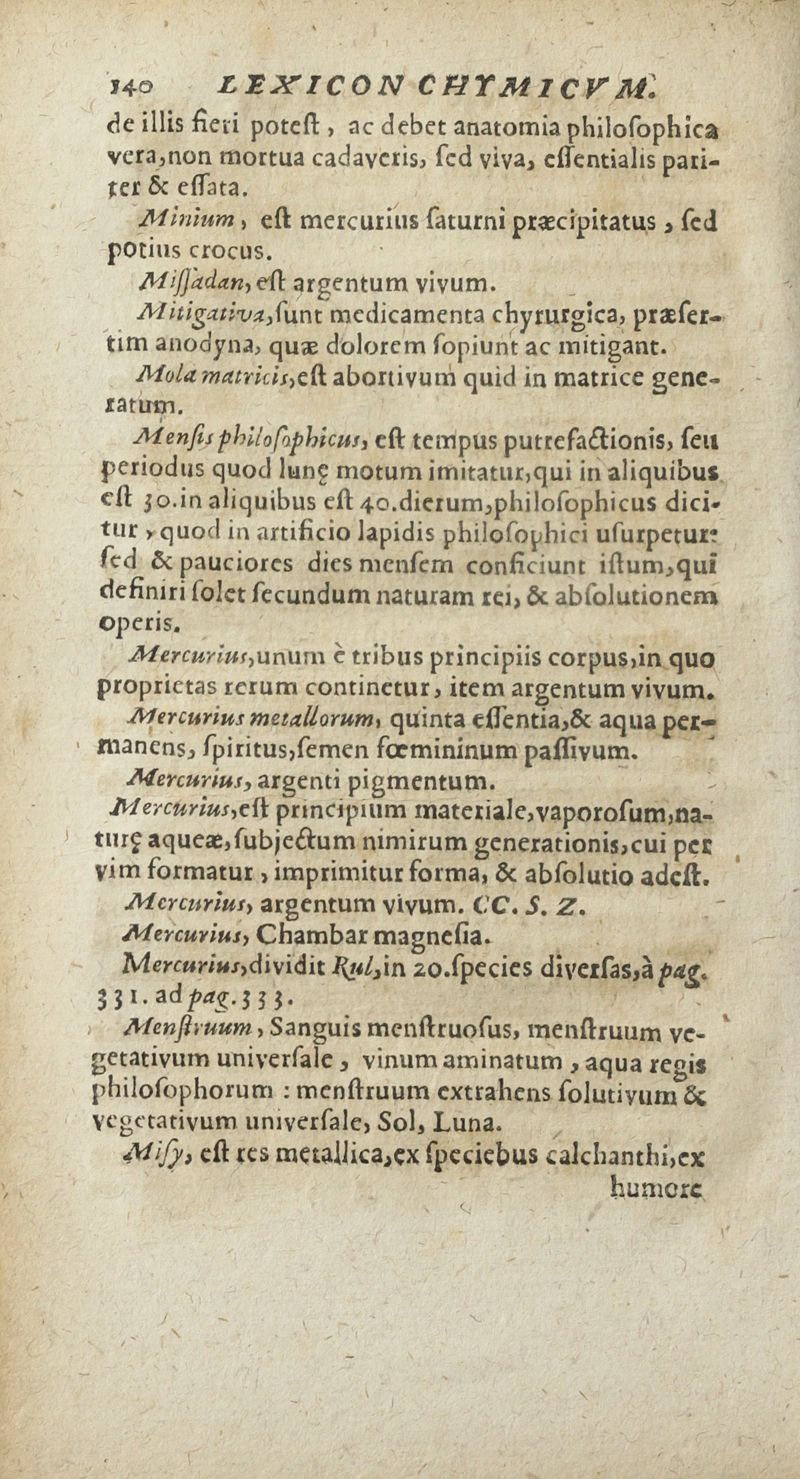 140 LEXICON CHYMICVM.
de illis fieri poteſt, ac debet anatomia philoſophica
vera, non mortua cadaveris, ſed viva, eſſentialis pari-
ter & eſſata.
Minium, eſt mercurius ſaturni præcipitatus, ſed
potius crocus.
Miſſadan, eſt argentum vivum.
Mitigativa, ſunt medicamenta chyrurgica, præſer-
tim anodyna, quæ dolorem ſopiunt ac mitigant.
Mola matricis, eſt abortivum quid in matrice gene-
ratum.
Menſis philoſophicus, eſt tempus putrefactionis, ſeu
periodus quod lunę motum imitatur, qui in aliquibus
eſt 30. in aliquibus eſt 40. dierum, philoſophicus dici-
tur, quod in artificio lapidis philoſophici uſurpetur:
ſed & pauciores dies menſem conficiunt iſtum, qui
definiri ſolet ſecundum naturam rei, & abſolutionem
operis.
Mercurius, unum è tribus principiis corpus, in quo
proprietas rerum continetur, item argentum vivum.
Mercurius metallorum, quinta eſſentia, & aqua per-
manens, ſpiritus, ſemen fœmininum paſſivum.
Mercurius, argenti pigmentum.
Mercurius, eſt principium materiale, vaporoſum, na-
turę aqueæ, ſubjectum nimirum generationis, cui per
vim formatur, imprimitur forma, & abſolutio adeſt.
Mercurius, argentum vivum. CC. S. Z.
Mercurius, Chambar magneſia.
Mercurius, dividit Rul, in 20. ſpecies diverſas, à pag.
331. ad pag. 333.
Menſtruum, Sanguis menſtruoſus, menſtruum ve-
getativum univerſale, vinum aminatum, aqua regis
philoſophorum : menſtruum extrahens ſolutivum &
vegetativum univerſale, Sol, Luna.
Miſy, eſt res metallica, ex ſpeciebus calchanthi, ex
humore